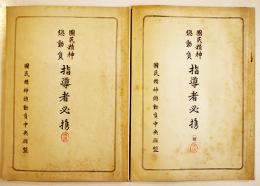 國民精神
總動員
指導者必携
國民精神總動員中央聯盟
國民精神
總動員
指導者必携
國民精神總動員中央聯盟